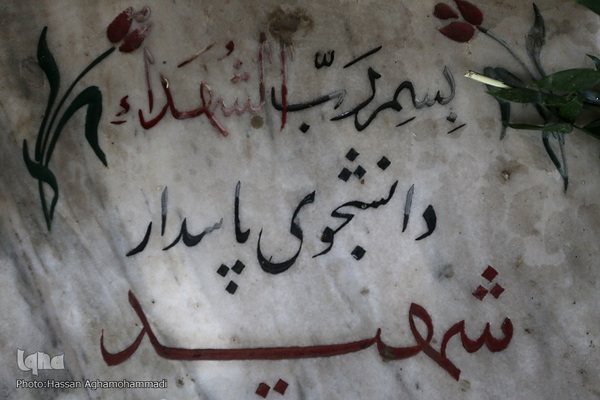 بِسمِ رَبِّ الشُهَداءِ
دانشجوی پاسدار
شهید
iqna
Photo:Hassan Aghamohammadi